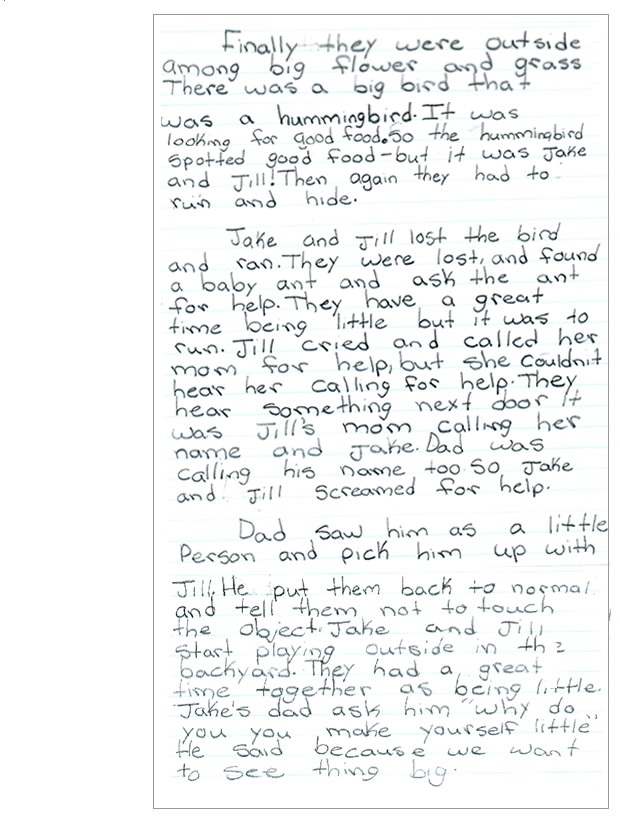 Finally they were outside
among big flower and grass
There was a big bird that
was a hummingbird. It was
looking for good food. So the hummingbird
spotted good food - but it was Jake
and Jill! Then again they had to
run and hide.
Jake and Jill lost the bird
and ran. They were lost, and found
a baby ant and ask the ant
for help. They have a great
time being little but it was to
run. Jill cried and called her
mom for help, but she couldn't
hear her calling for help. They
hear something next door It
was Jill's mom calling her
name and Jake. Dad was
calling his name too. So Jake
and Jill screamed for help.
Dad saw him as a little
Person and pick him up with
Jill. He put them back to normal
and tell them not to touch
the object. Jake and Jill
start playing outside in the
backyard. They had a great
time together as being little.
Jake's dad ask him "why do
you you make yourself little"
He said because we want
to see thing big.